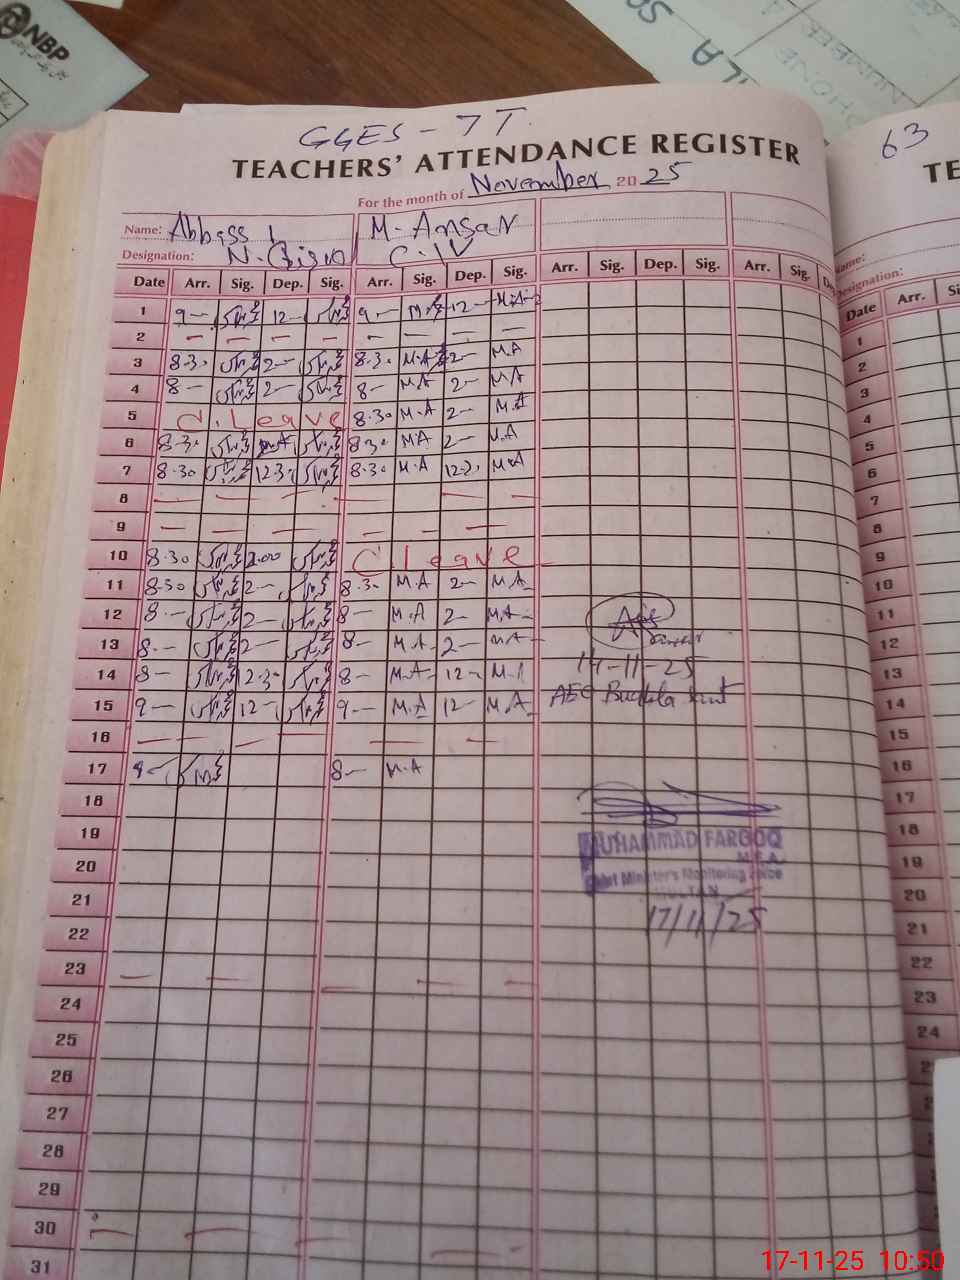 NBP
GGES - 7T
TEACHERS' ATTENDANCE REGISTER
For the month of November 20 25
Name: Abbass M. Ansar
Designation: N. Qisid C-IV
Date Arr. Sig. Dep. Sig. Arr. Sig. Dep. Sig. Arr. Sig. Dep. Sig. Arr. Sig.
1 9— 12— 9— 12— M.A
2 — — — — — — — —
3 8.30 2— 8.30 M.A 2— M.A
4 8— 2— 8— MA 2— MA
5 C. Leave 8.30 M.A 2— M.A
6 8.30 8.30 MA 2— M.A
7 8.30 12.30 8.30 M.A M.A
8 — — — — —
9 — — — — —
10 8.30 2.00 C. Leave
11 8.30 2— 8.30 M.A 2— M.A
12 8— 2— 8— M.A 2— M.A
13 8— 2— 8— M.A 2— M.A
14 8— 12.30 8— M.A 12— M.A
15 9— 12— 9— M.A 12— M.A
16 — — — — —
17 8— M.A
18
19
20
21
22
23 — — — — —
24
25
26
27
28
29
30 — — — —
31
14-11-25
AEO
MUHAMMAD FAROOQ
M.E.A
Chief Minister's Monitoring Force
MULTAN
17/11/25
63
TE
Name:
Designation:
Date Arr.
1
2
3
4
5
6
7
8
9
10
11
12
13
14
15
16
17
18
19
20
21
22
23
24
17-11-25 10:50